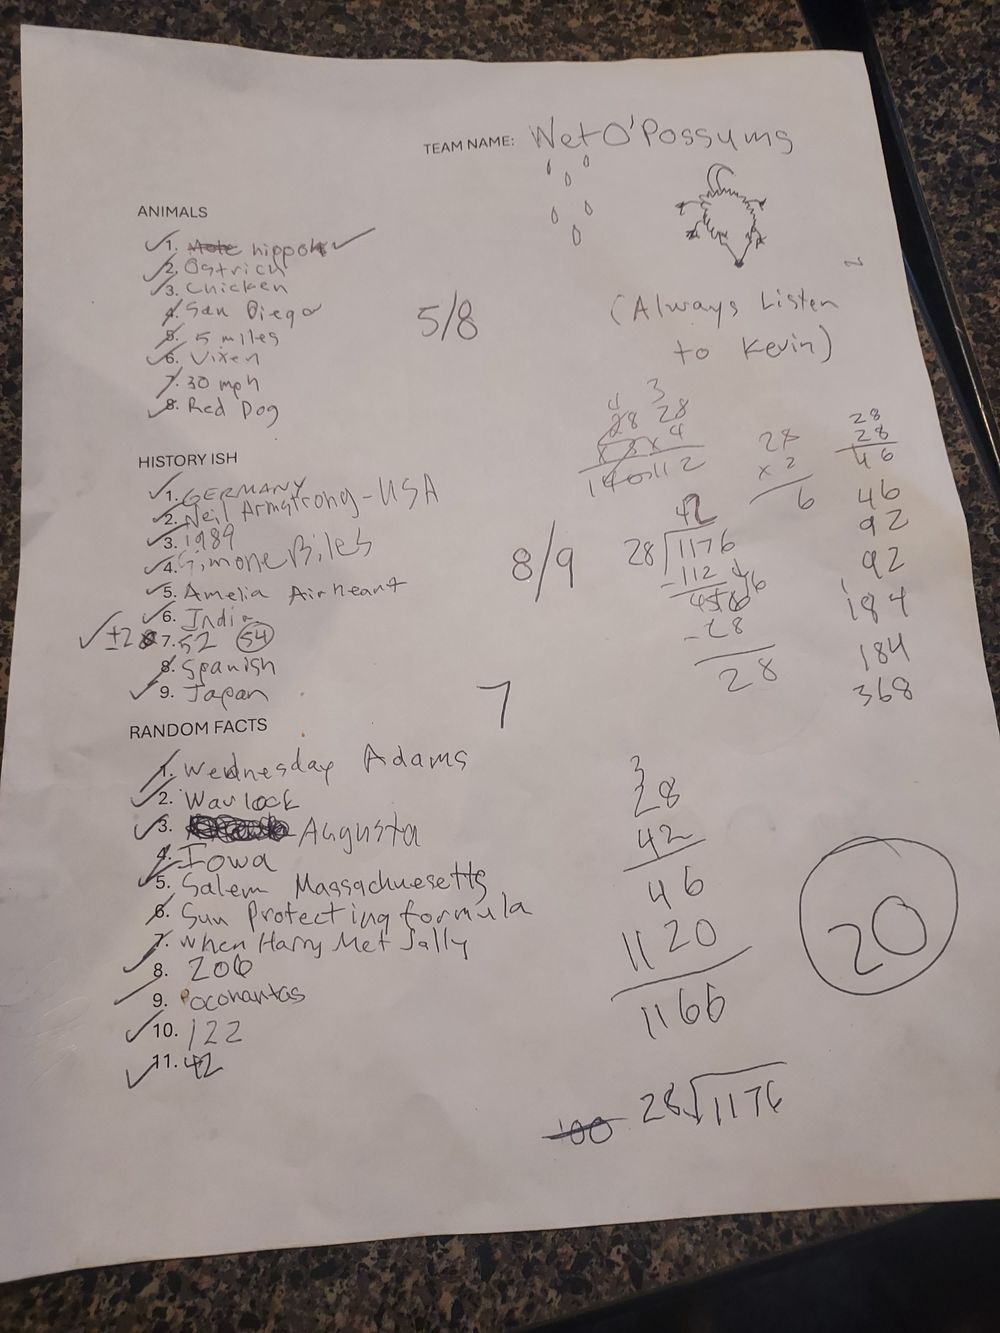 TEAM NAME: Wet O'Possums
ANIMALS
1. Mole hippo
2. Ostrich
3. Chicken
4. San Diego
5. 5 miles
6. Vixen
7. 30 mph
8. Red Dog
5/8
(Always Listen
to Kevin)
HISTORY ISH
1. GERMANY
2. Neil Armstrong - USA
3. 1989
4. Simone Biles
5. Amelia Airheart
6. India
±2 7. 52 54
8. Spanish
9. Japan
8/9
4 3
28 28
x 4
140 112
28
x 2
6
28
28
46
46
92
92
184
184
368
42
28 1176
-112
-28
28
7
RANDOM FACTS
1. Wednesday Adams
2. Warlock
3. Augusta
4. Iowa
5. Salem Massachuesetts
6. Sun Protecting formula
7. When Harry Met Sally
8. 206
9. Poconantas
10. 122
11. 42
3
28
42
46
1120
1166
20
100 28 1176